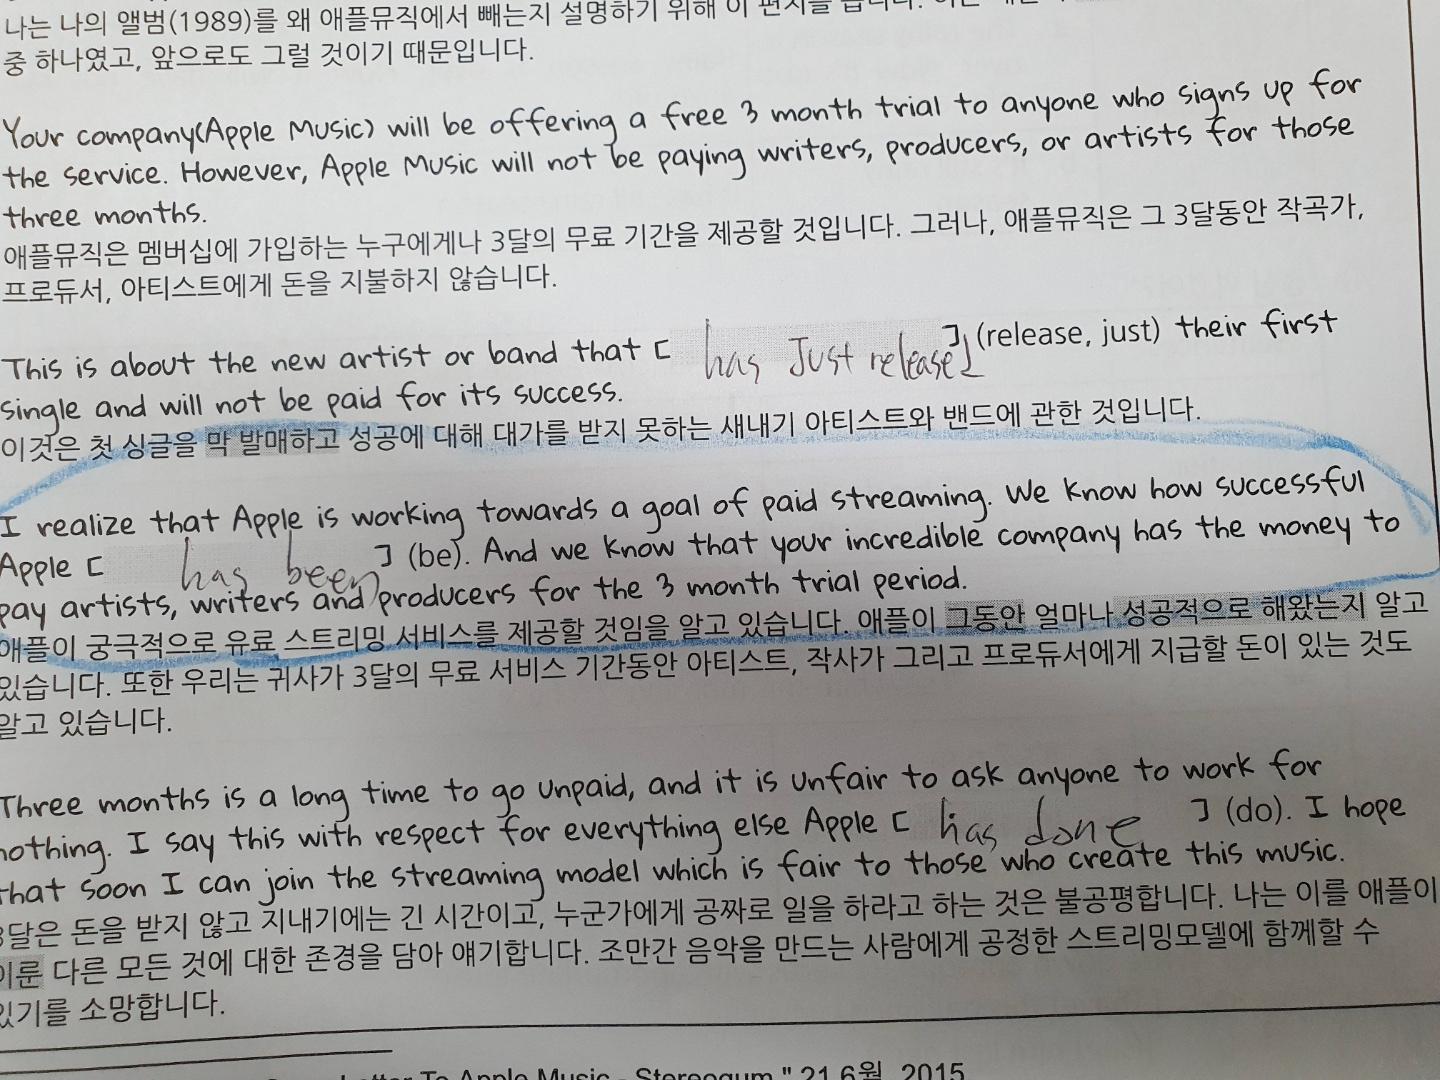 나는 나의 앨범(1989)를 왜 애플뮤직에서 빼는지 설명하기 위해 이 편지를
중 하나였고, 앞으로도 그럴 것이기 때문입니다.
Your company(Apple Music) will be offering a free 3 month trial to anyone who signs up for
the service. However, Apple Music will not be paying writers, producers, or artists for those
three months.
애플뮤직은 멤버십에 가입하는 누구에게나 3달의 무료 기간을 제공할 것입니다. 그러나, 애플뮤직은 그 3달동안 작곡가,
프로듀서, 아티스트에게 돈을 지불하지 않습니다.
This is about the new artist or band that [ has Just released ] (release, just) their first
single and will not be paid for its success.
이것은 첫 싱글을 막 발매하고 성공에 대해 대가를 받지 못하는 새내기 아티스트와 밴드에 관한 것입니다.
I realize that Apple is working towards a goal of paid streaming. We know how successful
Apple [ has been ] (be). And we know that your incredible company has the money to
pay artists, writers and producers for the 3 month trial period.
애플이 궁극적으로 유료 스트리밍 서비스를 제공할 것임을 알고 있습니다. 애플이 그동안 얼마나 성공적으로 해왔는지 알고
있습니다. 또한 우리는 귀사가 3달의 무료 서비스 기간동안 아티스트, 작사가 그리고 프로듀서에게 지급할 돈이 있는 것도
알고 있습니다.
Three months is a long time to go unpaid, and it is unfair to ask anyone to work for
nothing. I say this with respect for everything else Apple [ has done ] (do). I hope
that soon I can join the streaming model which is fair to those who create this music.
3달은 돈을 받지 않고 지내기에는 긴 시간이고, 누군가에게 공짜로 일을 하라고 하는 것은 불공평합니다. 나는 이를 애플이
이룬 다른 모든 것에 대한 존경을 담아 얘기합니다. 조만간 음악을 만드는 사람에게 공정한 스트리밍모델에 함께할 수
있기를 소망합니다.
Letter To Apple Music - Stereogum." 21 6월. 2015